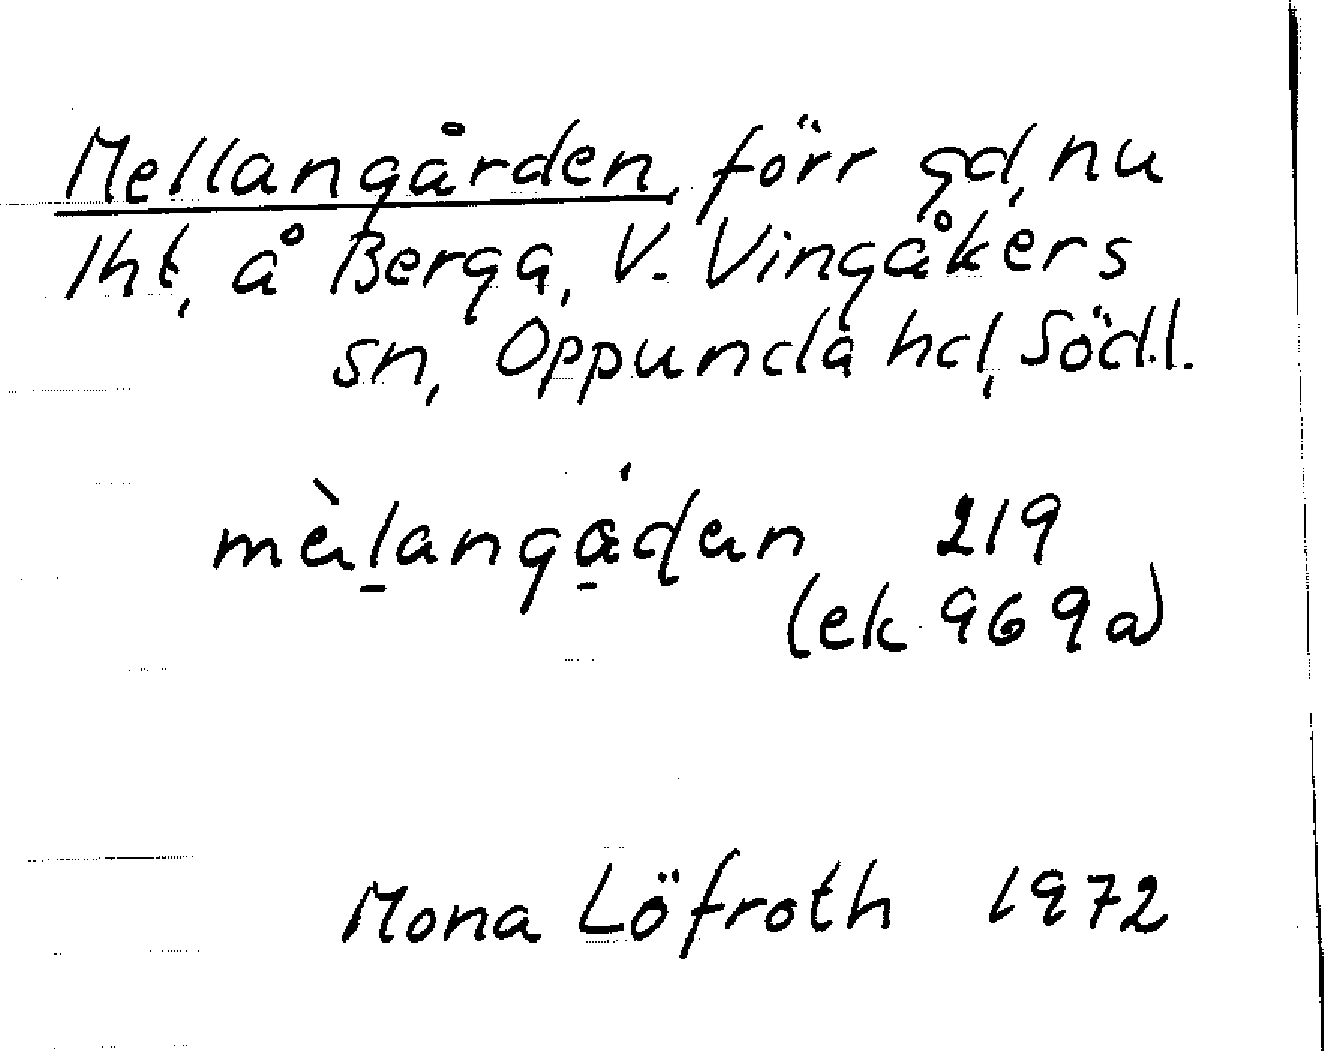 Mellangården, förr gd, nu
lht, å Berga, V. Vingåkers
sn, Oppunda hd, Södl.
mèlangådan 219
(ek 969a)
Mona Löfroth 1972